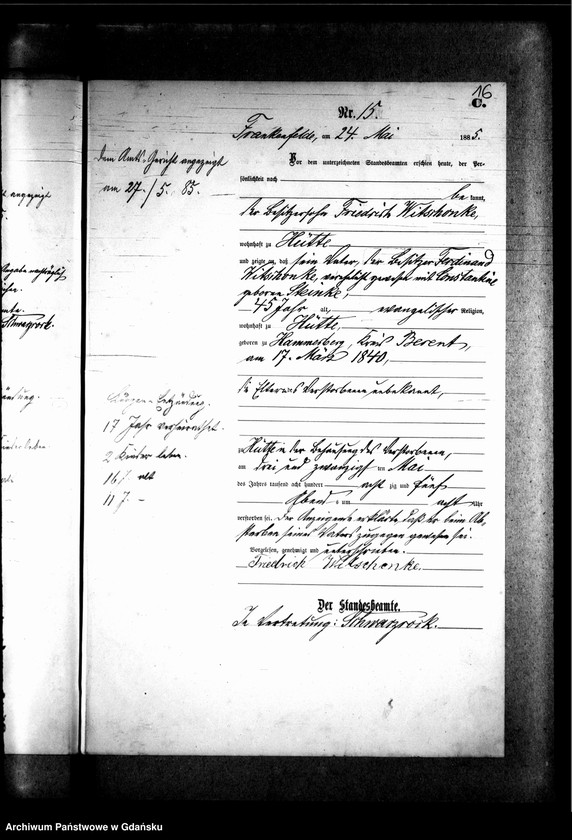 16
C.
Nr. 15.
Frankenfelde, am 24. Mai 1885.
Vor dem unterzeichneten Standesbeamten erschien heute, der Per-
sönlichkeit nach
be kannt,
der Besitzersohn Friedrich Witschonke,
wohnhaft zu Hütte
und zeigte an, daß sein Vater, der Besitzer Ferdinand
Witschonke, verehelicht gewesen mit Constantine
geboren Steinke,
45 Jahr alt, evangelischer Religion,
wohnhaft zu Hütte,
geboren zu Hammerberg, Kreis Berent,
am 17. März 1840,
die Eltern des Verstorbenen unbekannt,
zu Hütte in der Behausung des Verstorbenen,
am drei und zwanzigsten Mai
des Jahres tausend acht hundert acht zig und fünf
Abends um acht Uhr
verstorben sei. Der Anzeigende erklärte daß er beim Ab-
sterben seines Vaters zugegen gewesen sei.
Vorgelesen, genehmigt und unterschrieben.
Friedrich Witschonke.
Der Standesbeamte.
In Vertretung: Schwarzrock.
Dem Amts-Gericht angezeigt
am 27./5. 85.
Lungen-Entzündung.
17 Jahr verheirathet.
2 Kinder leben.
16 J. alt
11 J. –
angezeigt
Schwarzrock.
Archiwum Państwowe w Gdańsku